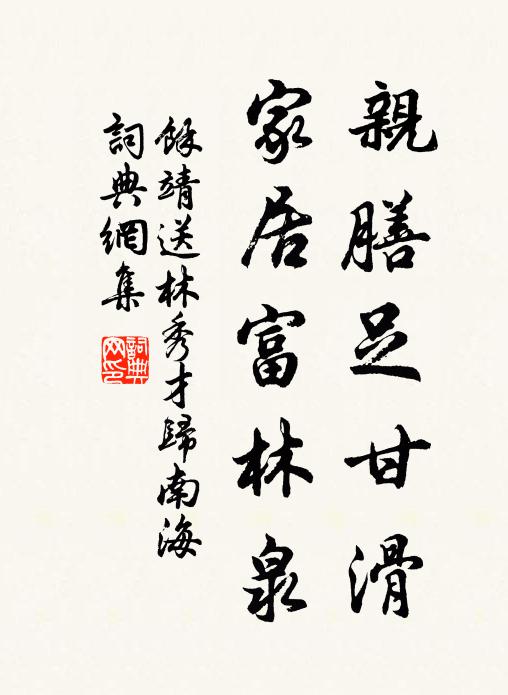 親膳足甘滑
家居富林泉
餘靖送林秀才歸南海
詞典網集
詞典網印